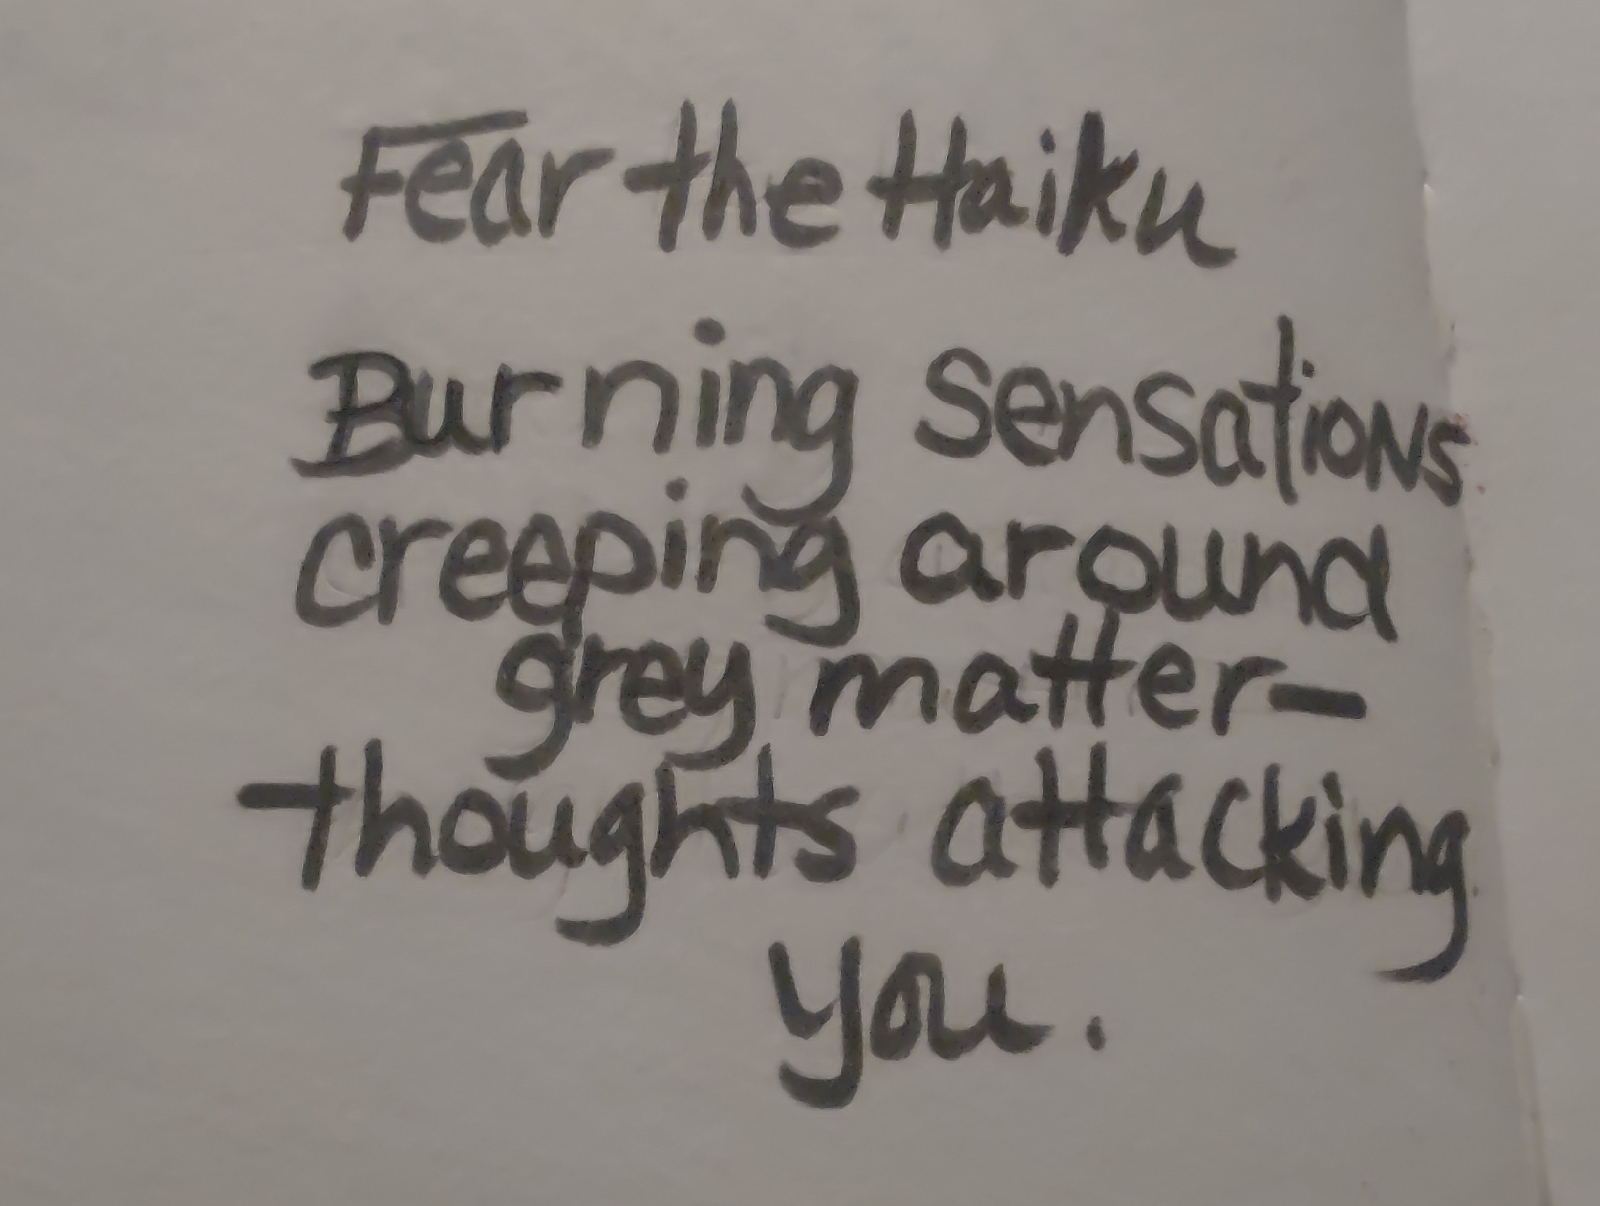 Fear the Haiku
Burning sensations
creeping around
grey matter-
thoughts attacking
you.